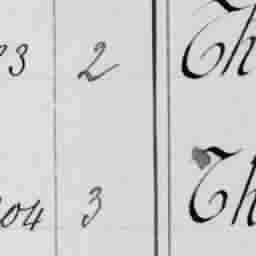 3 2 Th
04 3 Th